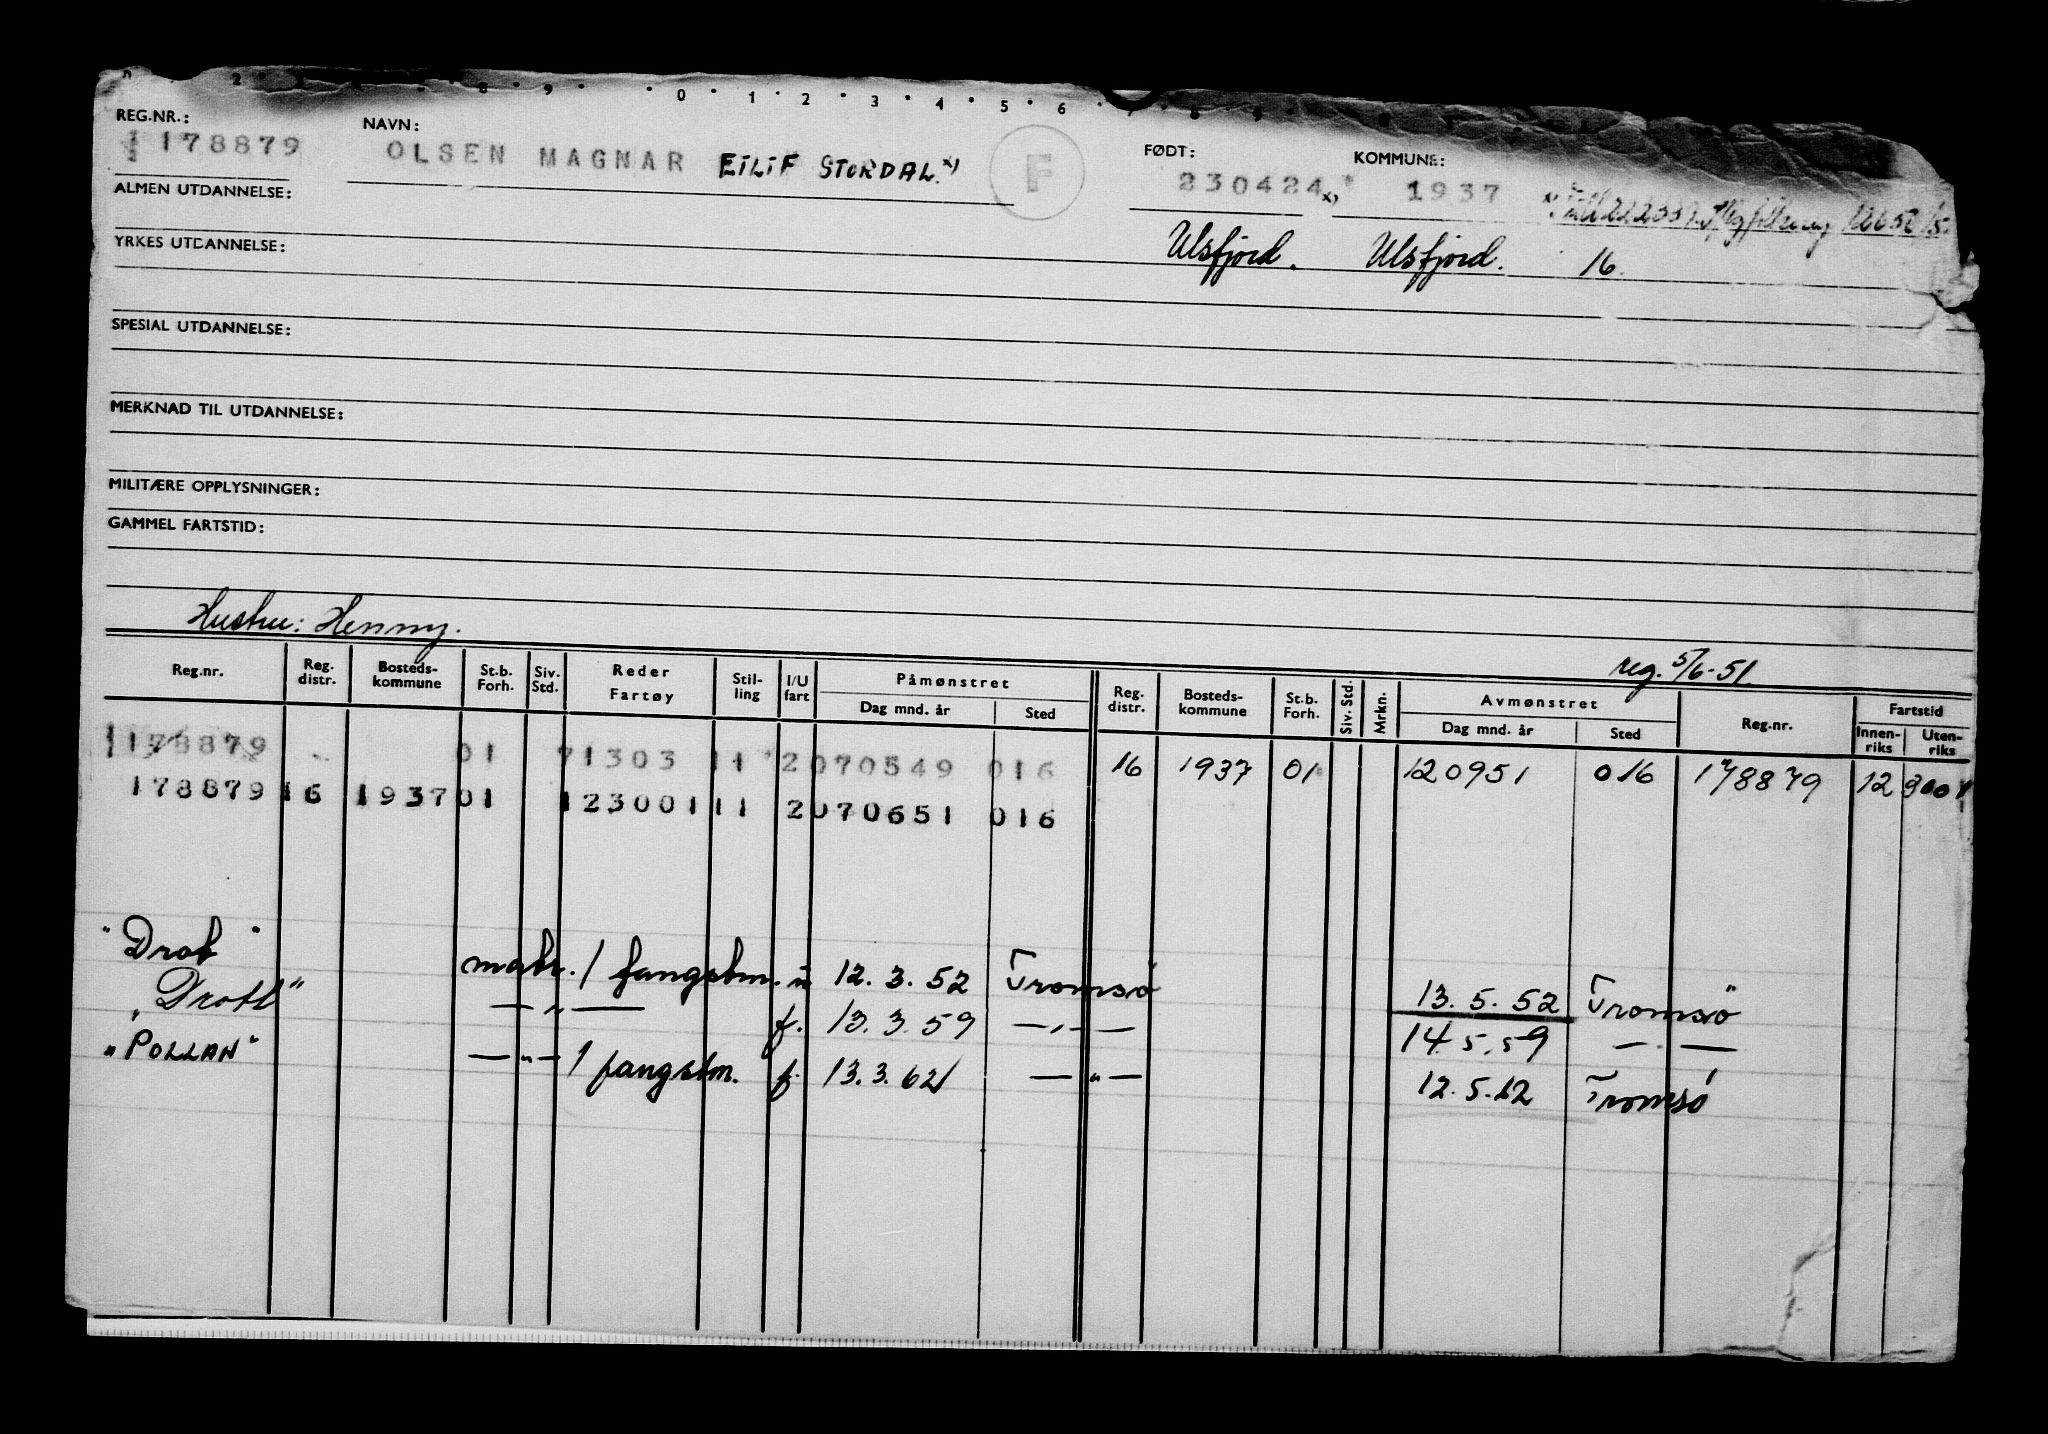 2 8 9 0 1 2 3 4 5 6 7 8 9
REG.NR.: NAVN: FØDT: KOMMUNE:
178879 OLSEN MAGNAR EILIF STORDAL. x) F 230424 x) 1937
ALMEN UTDANNELSE:
Ulsfjord. Ulsfjord. 16.
YRKES UTDANNELSE:
SPESIAL UTDANNELSE:
MERKNAD TIL UTDANNELSE:
MILITÆRE OPPLYSNINGER:
GAMMEL FARTSTID:
Hustru: Henny.
reg. 5/6-51
Reg.nr. Reg. distr. Bosteds-kommune St.b. Forh. Siv. Std. Reder Fartøy Stil-ling I/U fart Påmønstret Dag mnd. år Sted Reg. distr. Bosteds-kommune St.b. Forh. Siv. Std. Mrkn. Avmønstret Dag mnd. år Sted Reg.nr. Fartstid Innen-riks Uten-riks
178879 01 71303 11 2 070549 016 16 1937 01 120951 016 178879 12
178879 16 1937 01 123001 11 2 070651 016
"Drot" matr. / fangstm. u 12.3.52 Tromsø 13.5.52 Tromsø
"Drott" — " — f. 13.3.59 — " — 14.5.59 — " —
"POLLAN" — " — / fangstm. f. 13.3.62 — " — 12.5.62 Tromsø